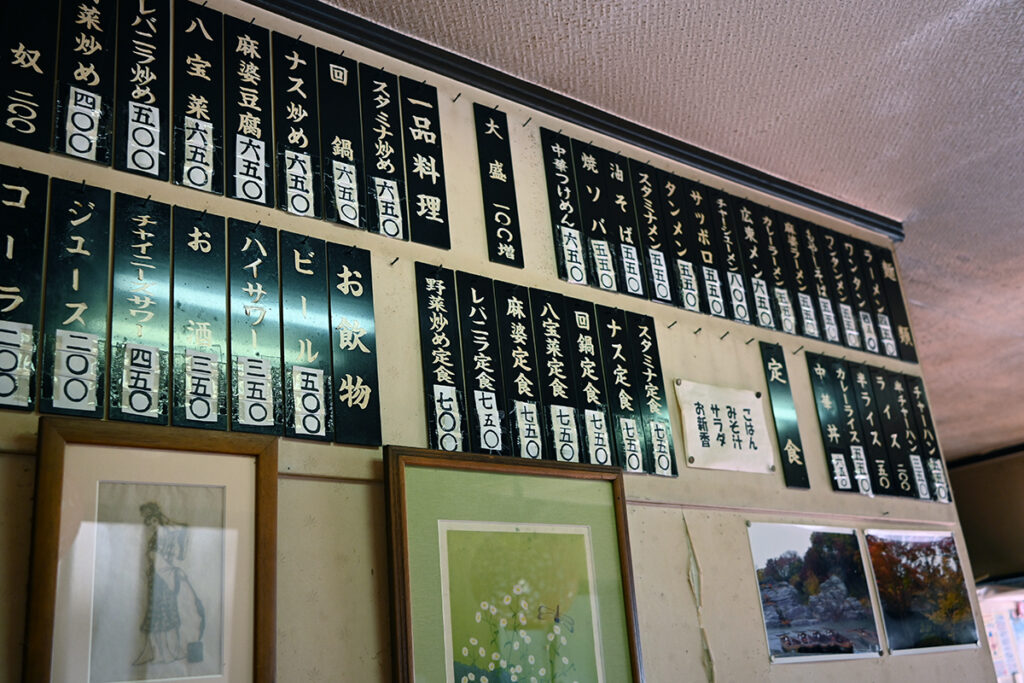 麺類
ラーメン
ワンタン
ワンタンメン 五五〇
もやしそば 五五〇
麻婆メン 五五〇
カレーラーメン 五五〇
広東メン 六五〇
チャーシューメン
サッポロ 五五〇
タンメン 五五〇
スタミナメン 五五〇
油そば 五五〇
焼ソバ 五五〇
中華つけめん 六五〇
大盛 一〇〇増
一品料理
スタミナ炒め 六五〇
回鍋 六五〇
ナス炒め 六五〇
麻婆豆腐 六五〇
八宝菜 六五〇
レバニラ炒め 五〇〇
野菜炒め 四〇〇
奴 二〇〇
チャーハン
半チャーハン
ライス 二〇〇
半ライス 一五〇
カレーライス
中華丼
定食
ごはん
みそ汁
サラダ
お新香
スタミナ定食 七五〇
ナス定食 七五〇
回鍋定食 七五〇
八宝菜定食 七五〇
麻婆定食 七五〇
レバニラ定食 七五〇
野菜炒め定食 七〇〇
お飲物
ビール 五〇〇
ハイサワー 三五〇
お酒 三五〇
チャイニーズサワー 四五〇
ジュース 二〇〇
コーラ 二〇〇